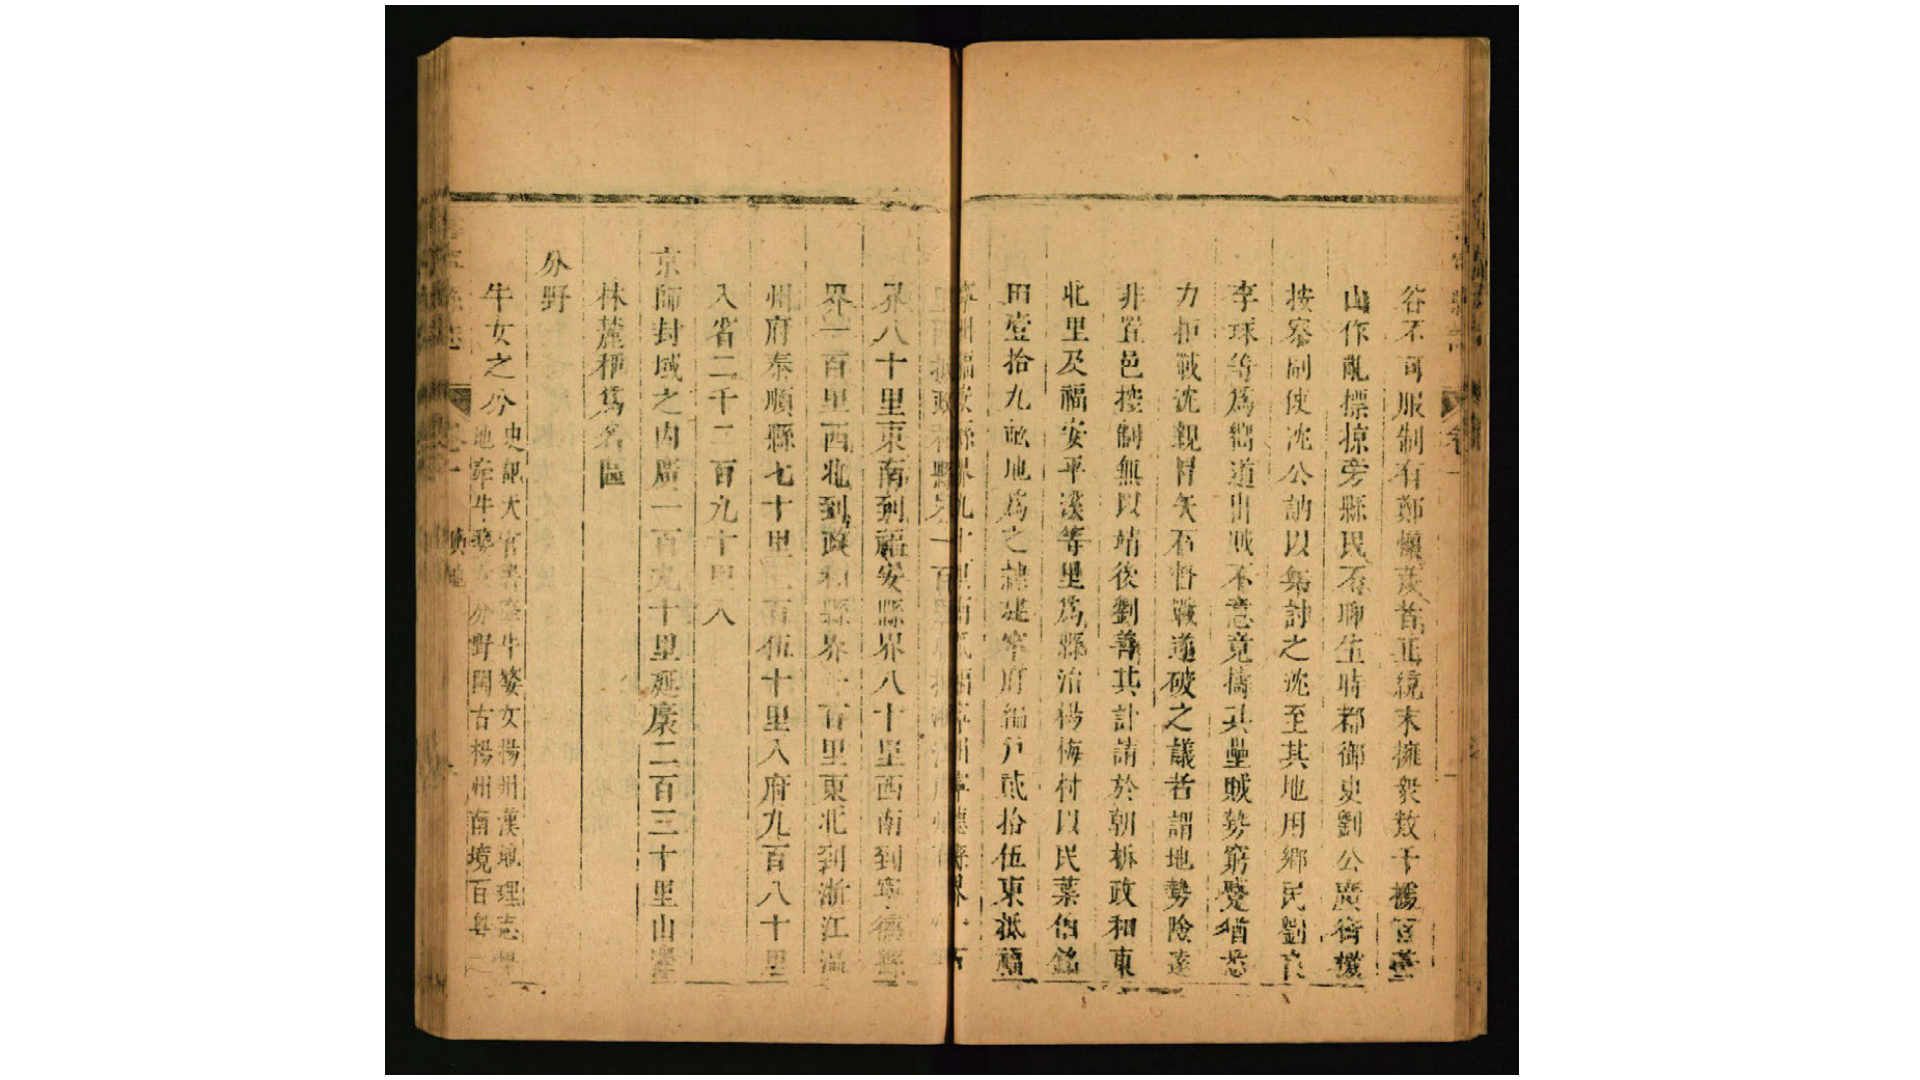 谷不可服制有鄭懷茂者正統末擁衆数千據官臺
山作亂摽掠旁縣民不聊生時都御史劉公廣衡檄
按察副使沈公訥以集討之沈至其地用鄉民劉良
李球等爲嚮道出賊不意竟擣其壘賊勢窮蹙猶悉
力拒戰沈親冒矢石督戰遂破之議者謂地勢險遠
非置邑控制無以靖後劉善其計請於朝柝政和東
北里及福安平溪等里爲縣治楊梅村以民葉伯銘
田壹拾九畝地爲之隷建寜府編戶貳拾伍東抵福
寜州福安縣界九十里南抵福寜州寜德縣界一百
里西抵政和縣界一百里
界八十里東南到福安縣界八十里西南到寜德縣
界一百里西北到政和縣界一百里東北到浙江温
州府泰順縣七十里二百伍十里入府九百八十里
入省二千二百九十里入
京師封域之内廣一百九十里延袤二百三十里山巒
林麓稱爲名區
分野
牛女之分
史記天官書牽牛婺女揚州漢地理志粤
地牽牛婺女分野閩古楊州南境百粤之